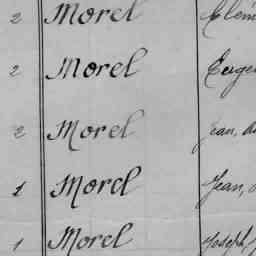 2 Morel Clém
2 Morel Euge
2 Morel Jean,
1 Morel Jean,
1 Morel Joseph,